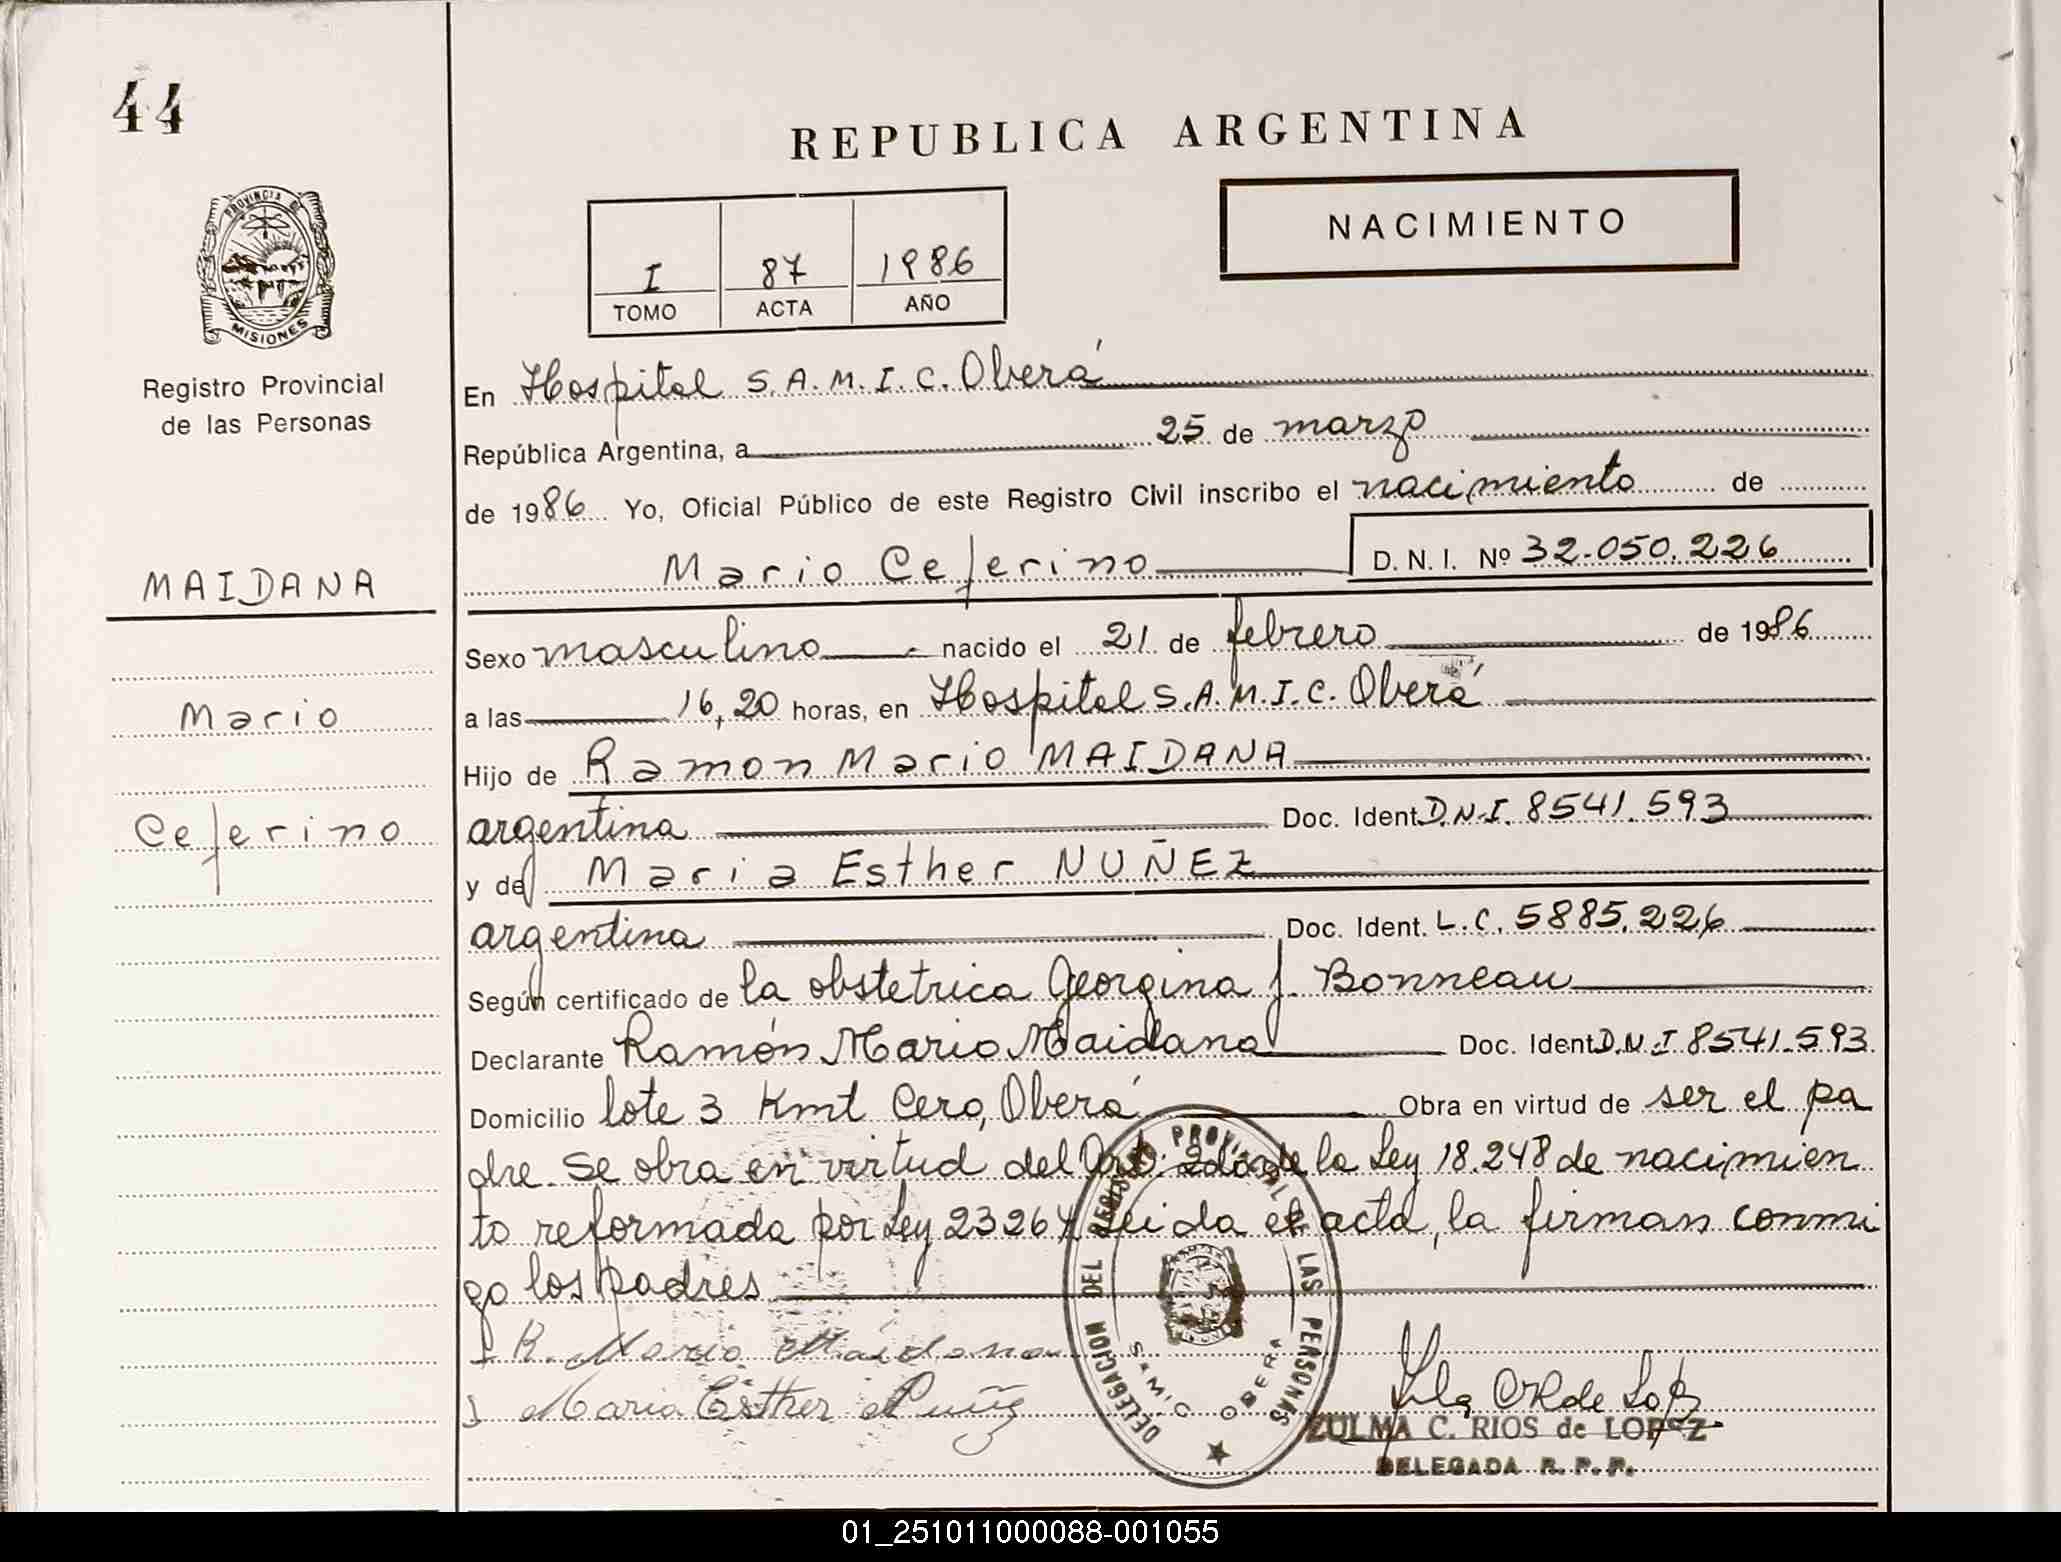 44
REPUBLICA ARGENTINA
NACIMIENTO
I 87 1986
TOMO ACTA AÑO
PROVINCIA DE
MISIONES
Registro Provincial
de las Personas
MAIDANA
Mario
Ceferino
En Hospital S.A.M.I.C. Oberá
República Argentina, a 25 de marzo
de 1986 Yo, Oficial Público de este Registro Civil inscribo el nacimiento de
Mario Ceferino D.N.I. Nº 32.050.226
Sexo masculino nacido el 21 de febrero de 1986
a las 16,20 horas, en Hospital S.A.M.I.C. Oberá
Hijo de Ramon Mario MAIDANA
argentina Doc. Ident. D.N.I. 8541.593
y de Maria Esther NUÑEZ
argentina Doc. Ident. L.C. 5885.226
Según certificado de la obstetrica Georgina J. Bonneau
Declarante Ramón Mario Maidana Doc. Ident. D.N.I 8541.593
Domicilio lote 3 Kmt Cero, Oberá Obra en virtud de ser el pa
dre. Se obra en virtud del Art. de la Ley 18.248 de nacimien
to reformada por Ley 23264 Leida el acta, la firman conmi
go los padres
R. Mario Maidana
Maria Esther Nuñez
DELEGACION DEL REGISTRO PROVINCIAL DE LAS PERSONAS
SAMIC OBERA
ZULMA C. RIOS de LOPEZ
DELEGADA R.P.P.
01_251011000088-001055